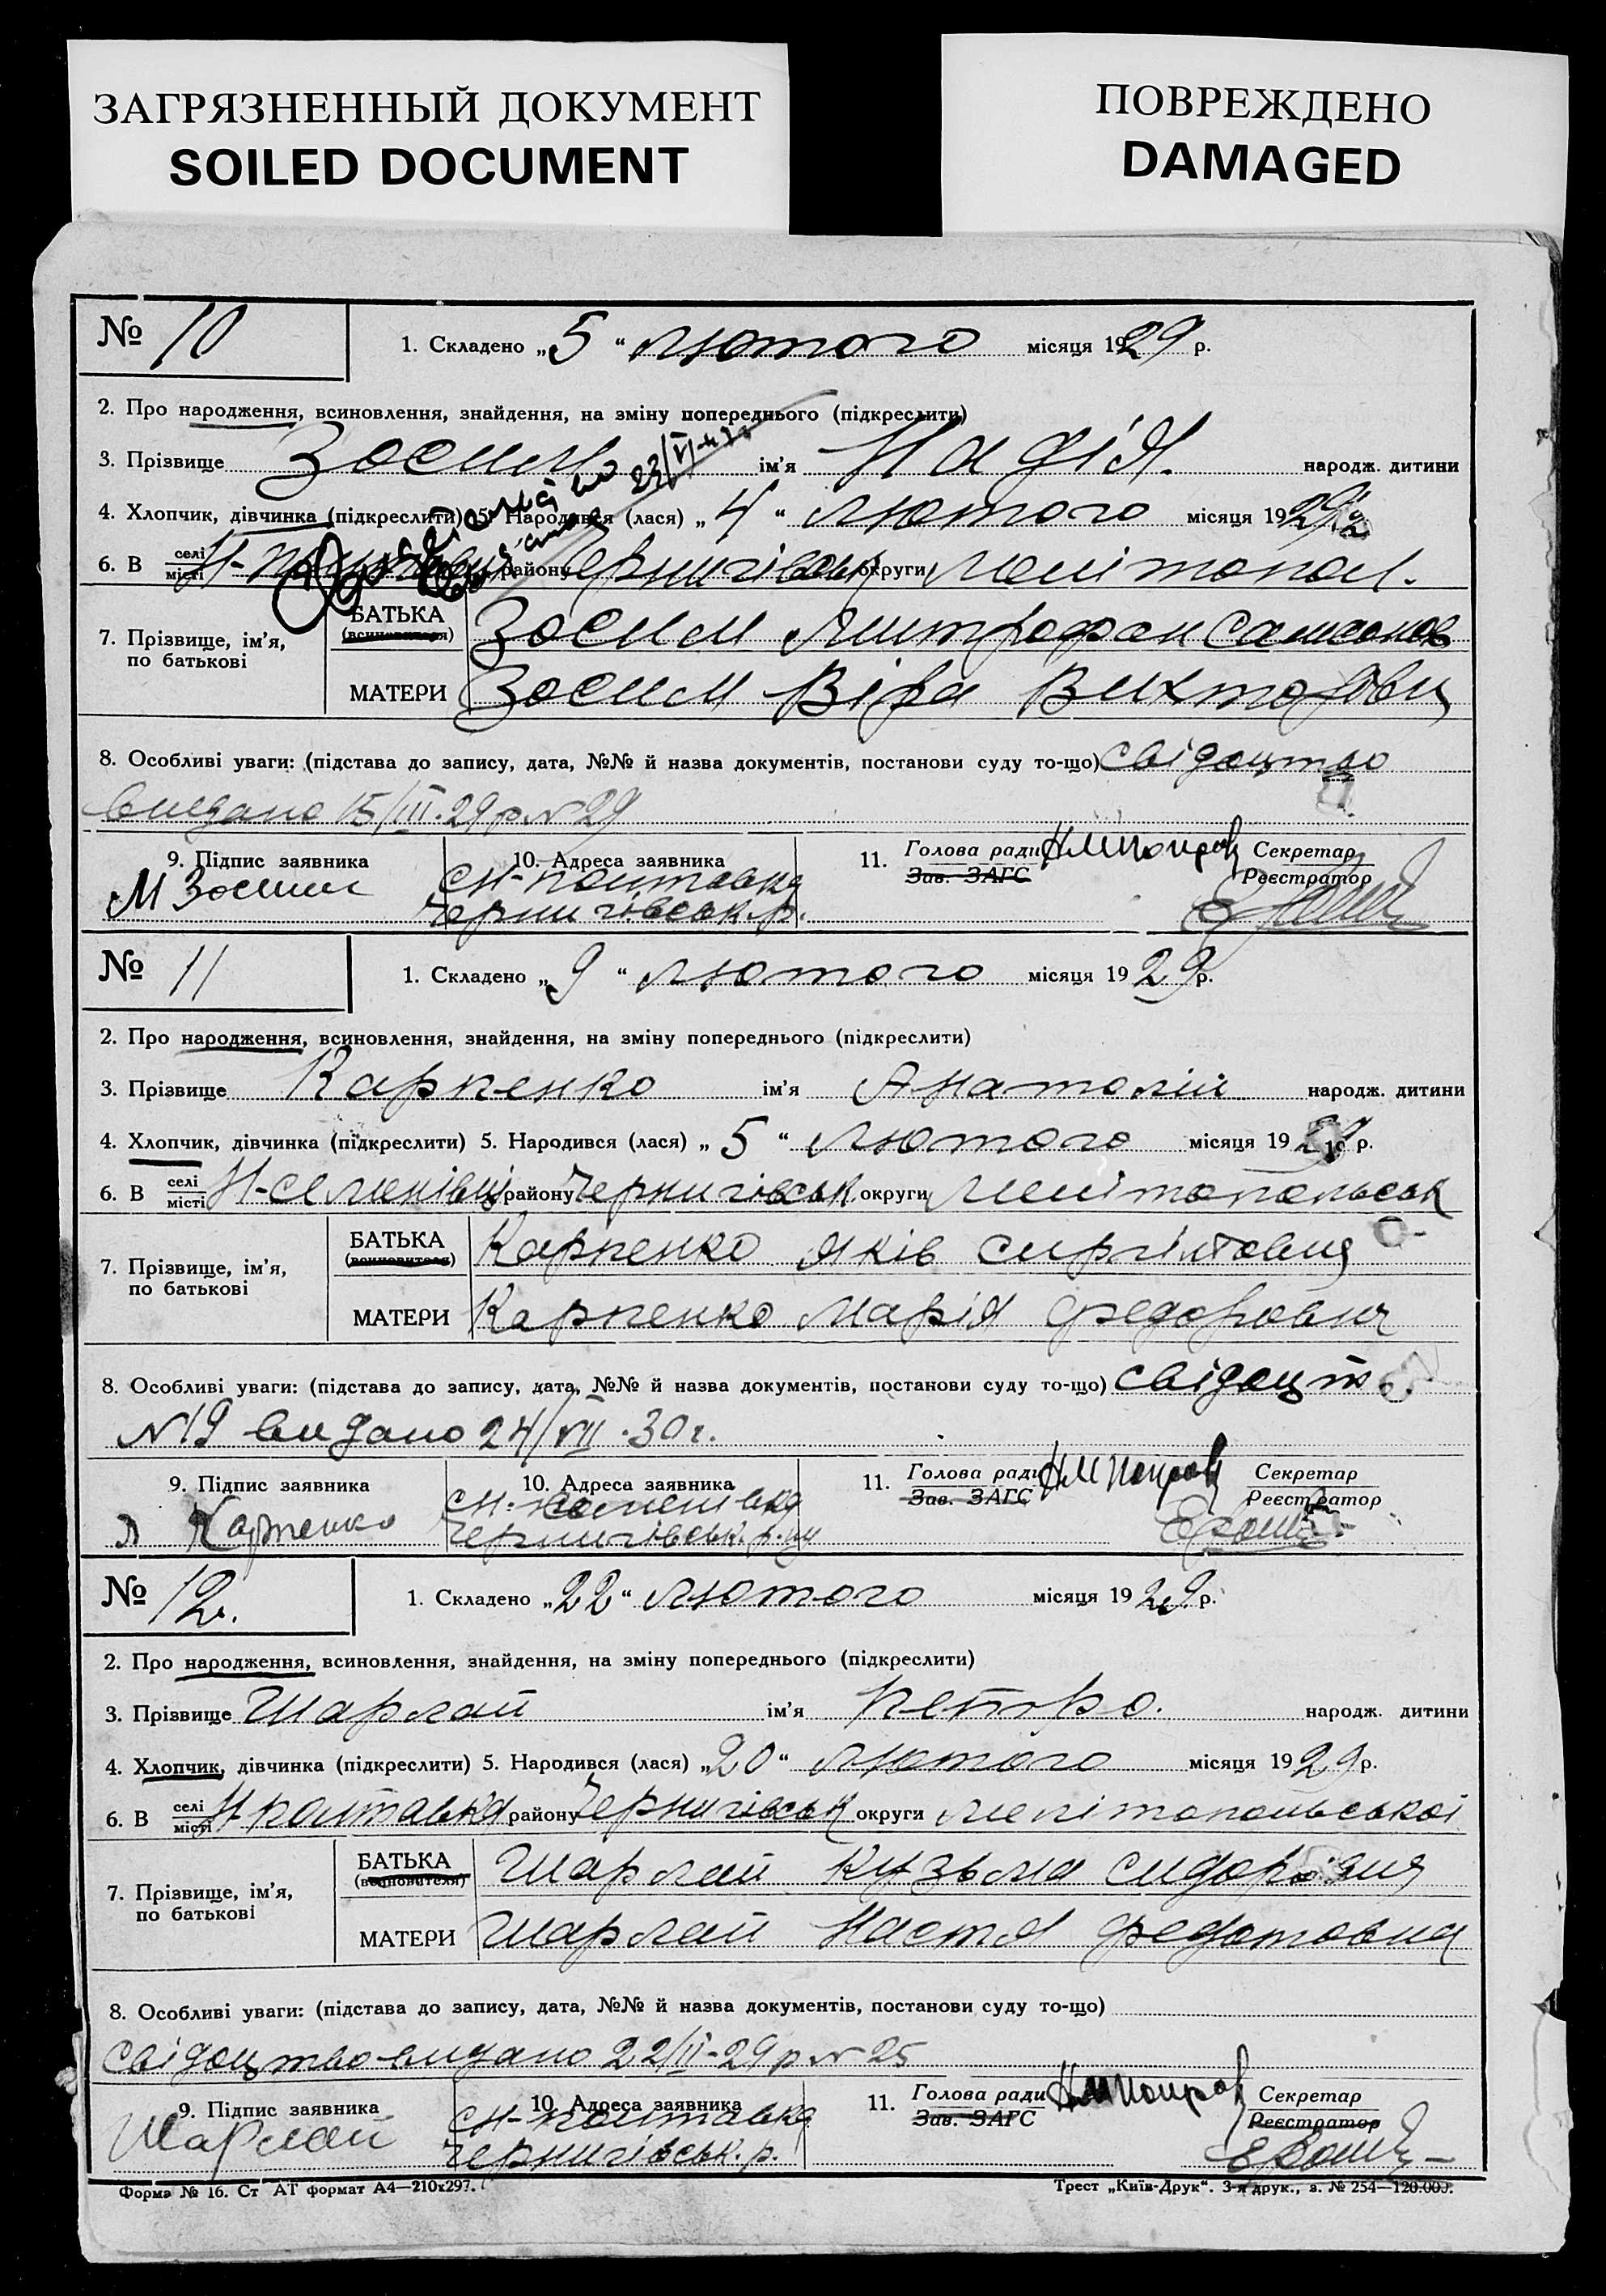 ЗАГРЯЗНЕННЫЙ ДОКУМЕНТ
SOILED DOCUMENT
ПОВРЕЖДЕНО
DAMAGED
№ 10
1. Складено „5“ лютого місяця 1929 р.
2. Про народження, всиновлення, знайдення, на зміну попереднього (підкреслити)
3. Прізвище Зосим ім’я Надія народж. дитини
4. Хлопчик, дівчинка (підкреслити) 5. Народився (лася) „4“ лютого місяця 1929 р.
6. В селі місті Н-Полтавка району Чернигівськ округи Мелітопол.
7. Прізвище, ім’я, по батькові
БАТЬКА (всиновителя) Зосим Митрофан Самсонов
МАТЕРИ Зосим Віра Вихторовна
8. Особливі уваги: (підстава до запису, дата, №№ й назва документів, постанови суду то-що) свідоцтво
видано 15/III-29 р N 29
9. Підпис заявника
М Зосим
10. Адреса заявника
с Н-Полтавка
Чернигівськ. р.
11. Голова ради
Зав. ЗАГС
Секретар
Реєстратор
№ 11
1. Складено „9“ лютого місяця 1929 р.
2. Про народження, всиновлення, знайдення, на зміну попереднього (підкреслити)
3. Прізвище Карпенко ім’я Анатолій народж. дитини
4. Хлопчик, дівчинка (підкреслити) 5. Народився (лася) „5“ лютого місяця 1929 р.
6. В селі місті Н-Семенівці району Чернигівськ. округи Мелітопольськ
7. Прізвище, ім’я, по батькові
БАТЬКА (всиновителя) Карпенко Яків
МАТЕРИ Карпенко Марія Федоровна
8. Особливі уваги: (підстава до запису, дата, №№ й назва документів, постанови суду то-що) свідоцтв
N 19 видано 24/VII-30 г.
9. Підпис заявника
Я Карпенко
10. Адреса заявника
с Н-Семенівка
Чернигівськ. р-ну
11. Голова ради
Зав. ЗАГС
Секретар
Реєстратор
№ 12.
1. Складено „22“ лютого місяця 1929 р.
2. Про народження, всиновлення, знайдення, на зміну попереднього (підкреслити)
3. Прізвище Шарлай ім’я Петро. народж. дитини
4. Хлопчик, дівчинка (підкреслити) 5. Народився (лася) „20“ лютого місяця 1929 р.
6. В селі місті Н Полтавка району Чернигівськ округи Мелітопольської
7. Прізвище, ім’я, по батькові
БАТЬКА (всиновителя) Шарлай Кузьма Сидорович
МАТЕРИ Шарлай Настя Федотовна
8. Особливі уваги: (підстава до запису, дата, №№ й назва документів, постанови суду то-що)
свідоцтво видано 22/II-29 р N 25
9. Підпис заявника
Шарлай
10. Адреса заявника
с Н-Полтавка
Чернигівськ. р.
11. Голова ради
Зав. ЗАГС
Секретар
Реєстратор
Форма № 16. Ст АТ формат А4—210х297.
Трест „Київ-Друк“. 3-я друк., з. № 254—120.000.